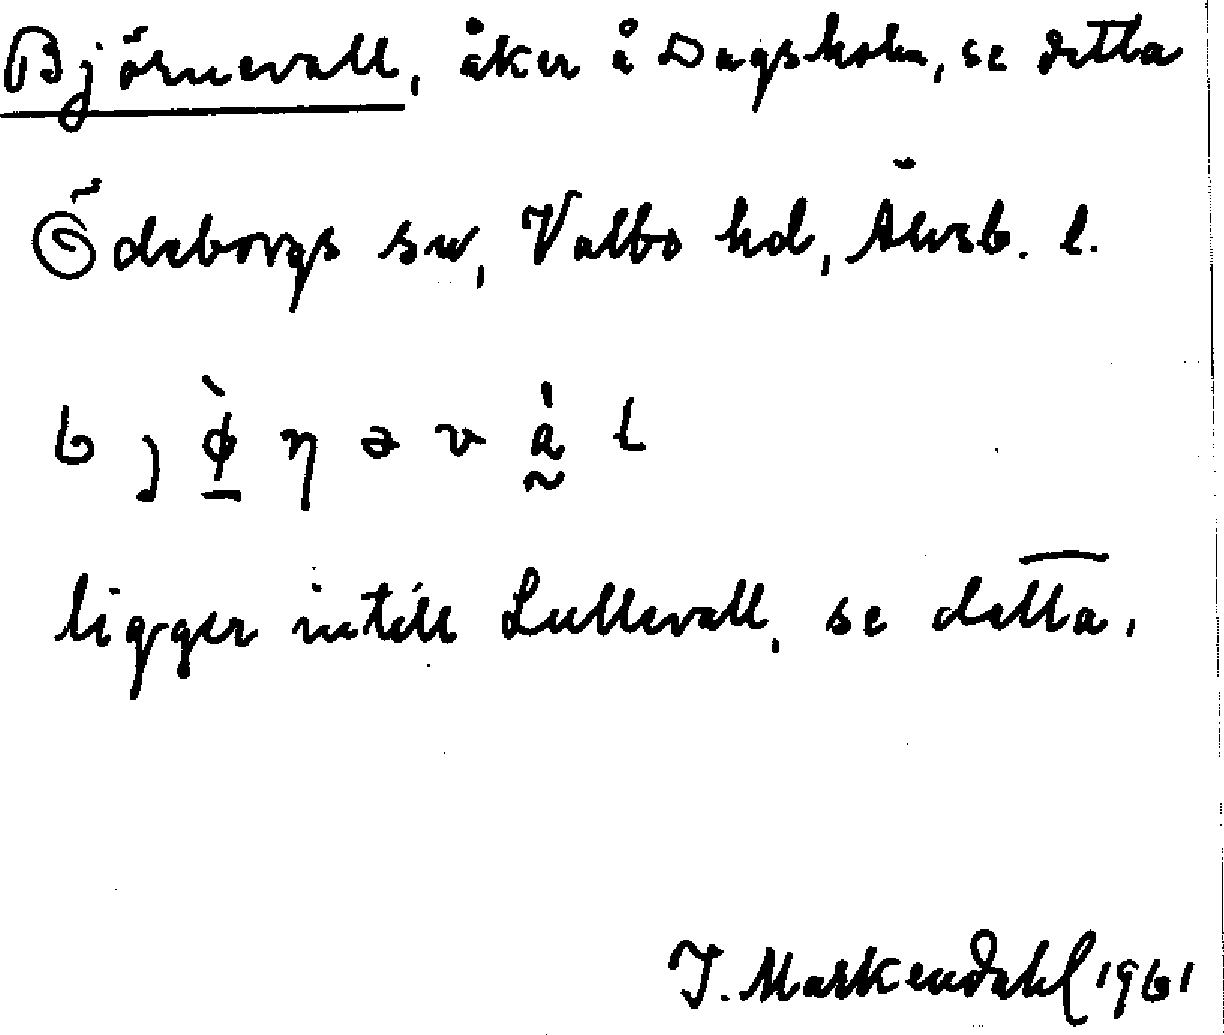 Björnevall, åker å Dagsholm, se detta
Ödeborgs sn, Valbo hd, Älvsb. l.
b j ø̱̀ η ə v å̰̀ l
ligger intill Lullevall, se detta.
J. Markendahl 1961